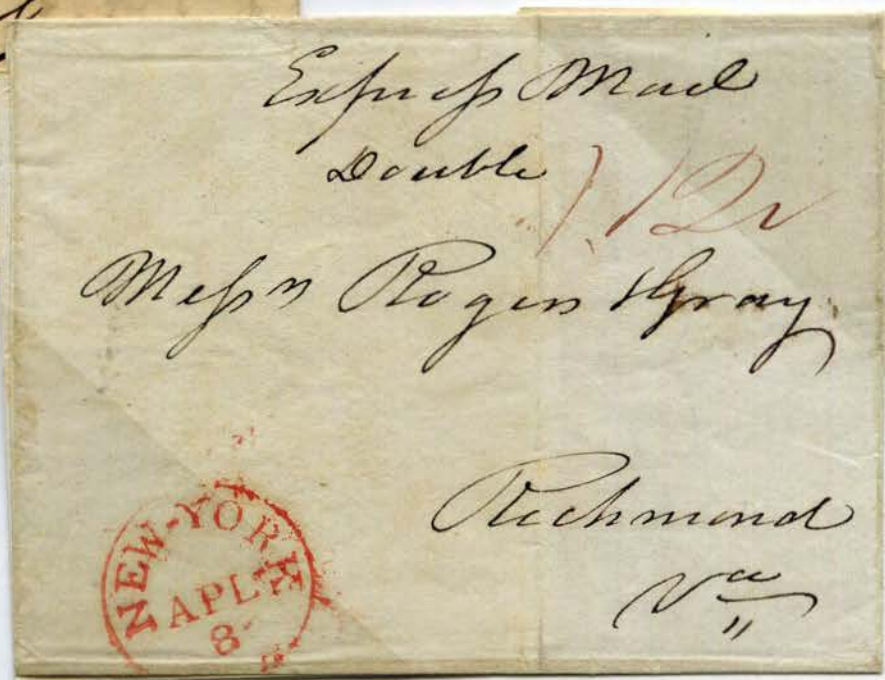 Express Mail
Double
Messrs Rogers & Gray
Richmond
Va
NEW-YORK
APL
8